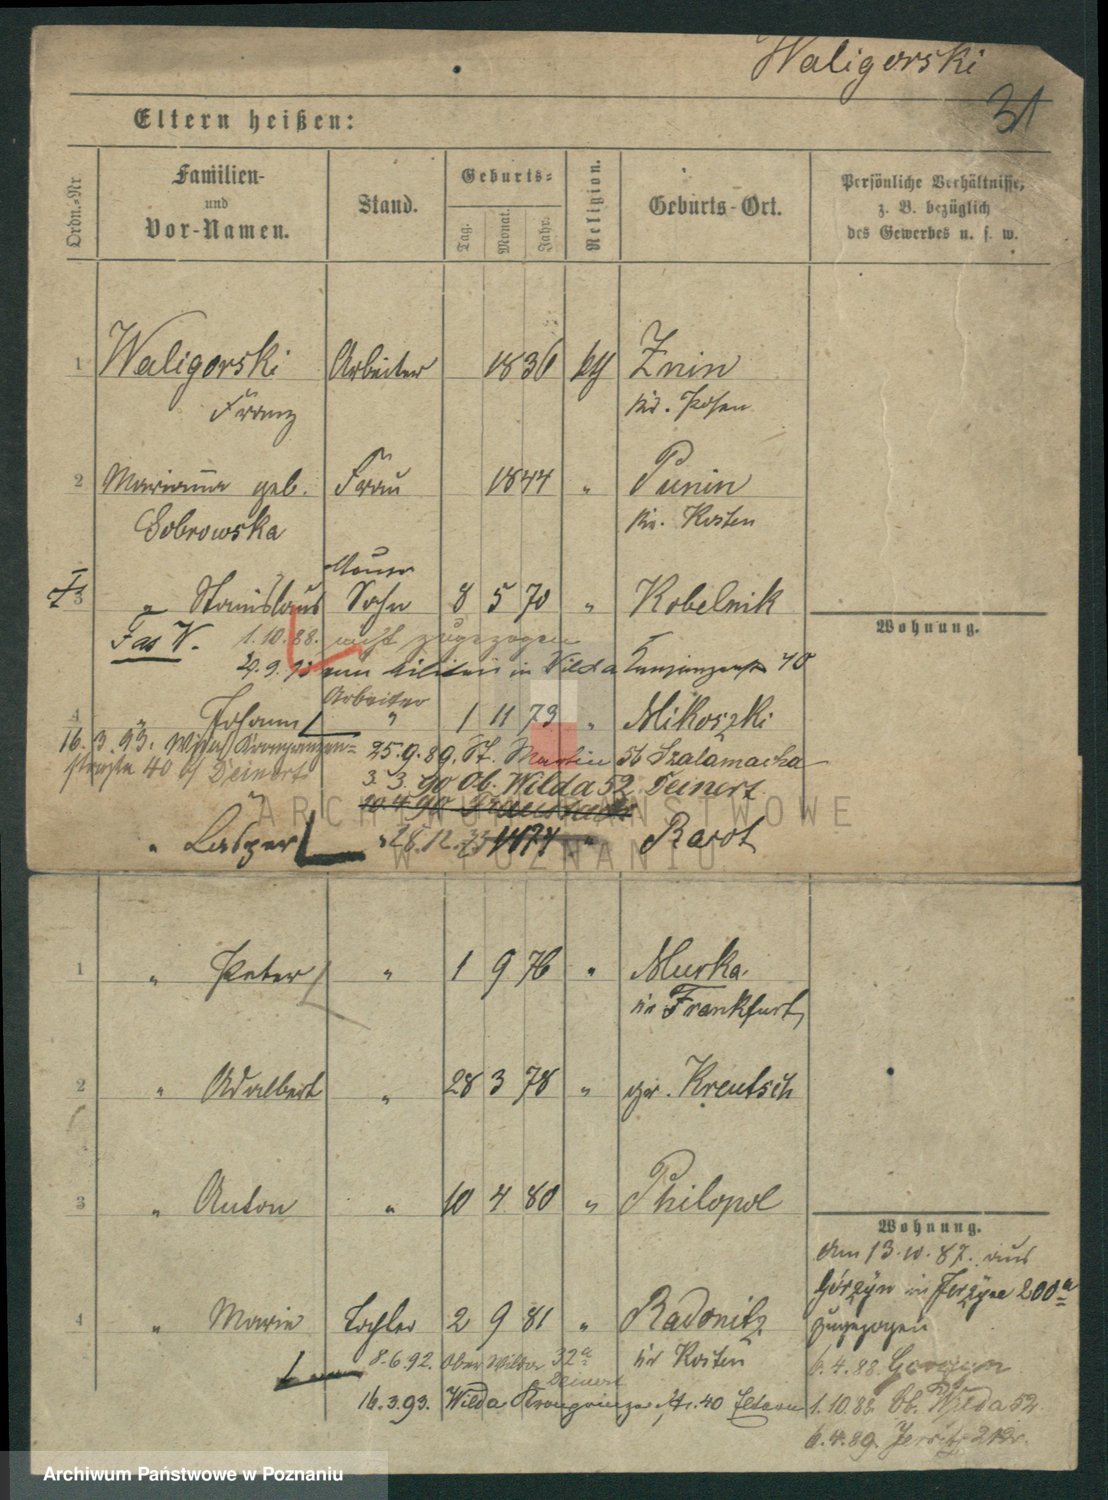 Waligorski
31
Eltern heißen:
Ordn.-Nr.
Familien-
und
Vor-Namen.
Stand.
Geburts-
Tag.
Monat.
Jahr.
Religion.
Geburts-Ort.
Persönliche Verhältnisse,
z. B. bezüglich
des Gewerbes u. s. w.
1 Waligorski Arbeiter 1836 kth Znin
Franz Kr. Posen
2 Marianna geb. Frau 1844 " Punin
Sobrowska Kr. Kosten
3 " Stanislaus Sohn 8 5 70 " Kobelnik
Wohnung.
1.10.88. nicht zugezogen
29.9. in Wilda 40
Arbeiter
4 " Johann " 1 11 73 " Mikoszki
16.3.93. Wilda Kronprinzen=
straße 40 b/ Deinert
25.9.89. St. Martin 56 Szalamacka
3.3.90 Ob. Wilda 52 Deinert
10.4.90
" " 28.12.73 1874 " Barot
1 " Peter " 1 9 76 " Murka
Kr Frankfurt
2 " Adalbert " 28 3 78 " gr. Kreutsch
3 " Anton " 10 4 80 " Philopol
Wohnung.
am 13.10.87. aus
Górzÿn in Jerzÿce 200a
zugezogen
4 " Marie Tochter 2 9 81 " Radonitz
Kr Kosten
8.6.92. Ober Wilda 32a
Deinert
16.3.93. Wilda Kronprinzenstr. 40 Eltern
6.4.88.
1.10.88. Ob. Wilda 52
6.4.89.
ARCHIWUM PAŃSTWOWE
W POZNANIU
Archiwum Państwowe w Poznaniu